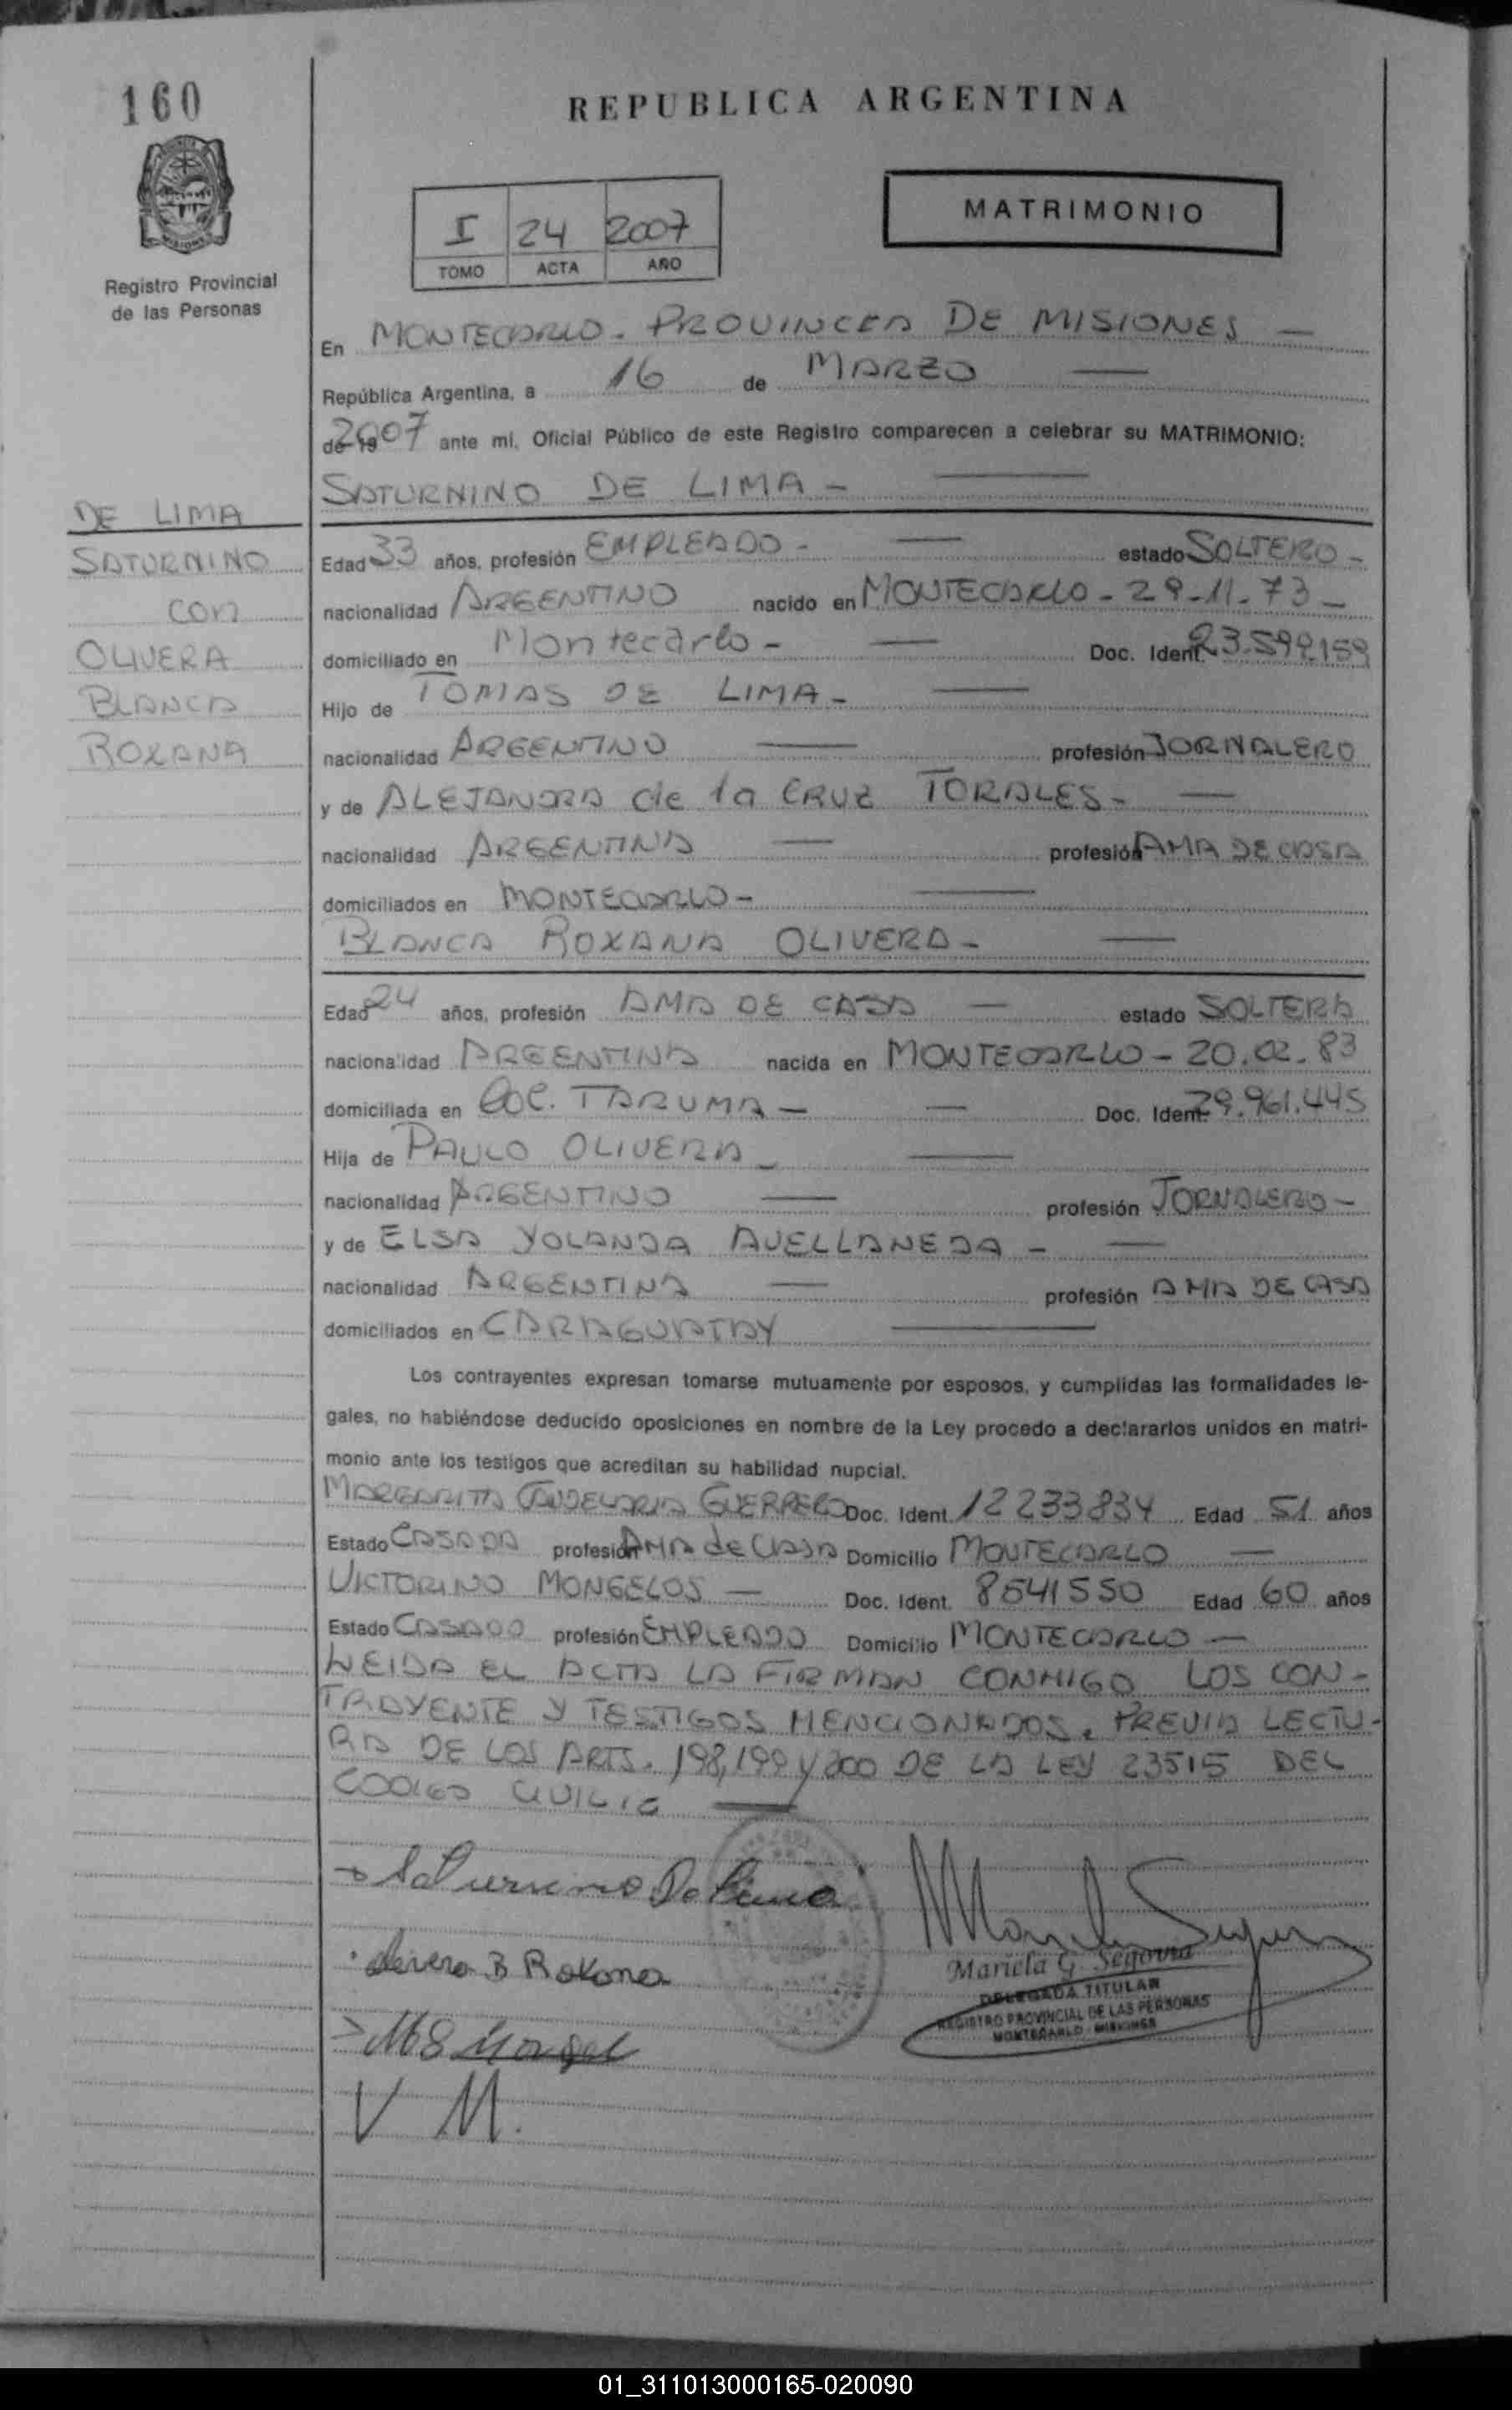 160
REPUBLICA ARGENTINA
MATRIMONIO
I 24 2007
TOMO ACTA AÑO
Registro Provincial
de las Personas
En MONTECARLO - PROVINCIA DE MISIONES —
República Argentina, a 16 de MARZO —
de 19 2007 ante mi, Oficial Público de este Registro comparecen a celebrar su MATRIMONIO:
SATURNINO DE LIMA - —
DE LIMA
SATURNINO
con
OLIVERA
BLANCA
ROXANA
Edad 33 años, profesión EMPLEADO - — estado SOLTERO -
nacionalidad ARGENTINO nacido en MONTECARLO - 29-11-73 -
domiciliado en Montecarlo - — Doc. Ident. 23.599.159
Hijo de TOMAS DE LIMA - —
nacionalidad ARGENTINO — profesión JORNALERO
y de ALEJANDRA de la CRUZ TORALES - —
nacionalidad ARGENTINA — profesión AMA DE CASA
domiciliados en MONTECARLO - —
BLANCA ROXANA OLIVERA - —
Edad 24 años, profesión AMA DE CASA — estado SOLTERA
nacionalidad ARGENTINA nacida en MONTECARLO - 20.02.83
domiciliada en Col. TARUMA - — Doc. Ident. 29.961.445
Hija de PAULO OLIVERA - —
nacionalidad ARGENTINO — profesión JORNALERO -
y de ELSA YOLANDA AVELLANEDA - —
nacionalidad ARGENTINA — profesión AMA DE CASA
domiciliados en CARAGUATAY —
Los contrayentes expresan tomarse mutuamente por esposos, y cumplidas las formalidades le-
gales, no habiéndose deducido oposiciones en nombre de la Ley procedo a declararlos unidos en matri-
monio ante los testigos que acreditan su habilidad nupcial.
MARGARITA CANDELARIA GUERRERO Doc. Ident. 12233834 Edad 51 años
Estado CASADA profesión AMA de CASA Domicilio MONTECARLO —
VICTORINO MONGELOS — Doc. Ident. 8541550 Edad 60 años
Estado CASADO profesión EMPLEADO Domicilio MONTECARLO —
LEIDA EL ACTA LA FIRMAN CONMIGO LOS CON-
TRAYENTE Y TESTIGOS MENCIONADOS, PREVIA LECTU-
RA DE LOS ARTS. 198, 199 y 200 DE LA LEY 23515 DEL
CODIGO CIVIL
Saturnino De Lima
B Roxana
V M.
Mariela G. Segovia
DELEGADA TITULAR
REGISTRO PROVINCIAL DE LAS PERSONAS
MONTECARLO - MISIONES
01_311013000165-020090